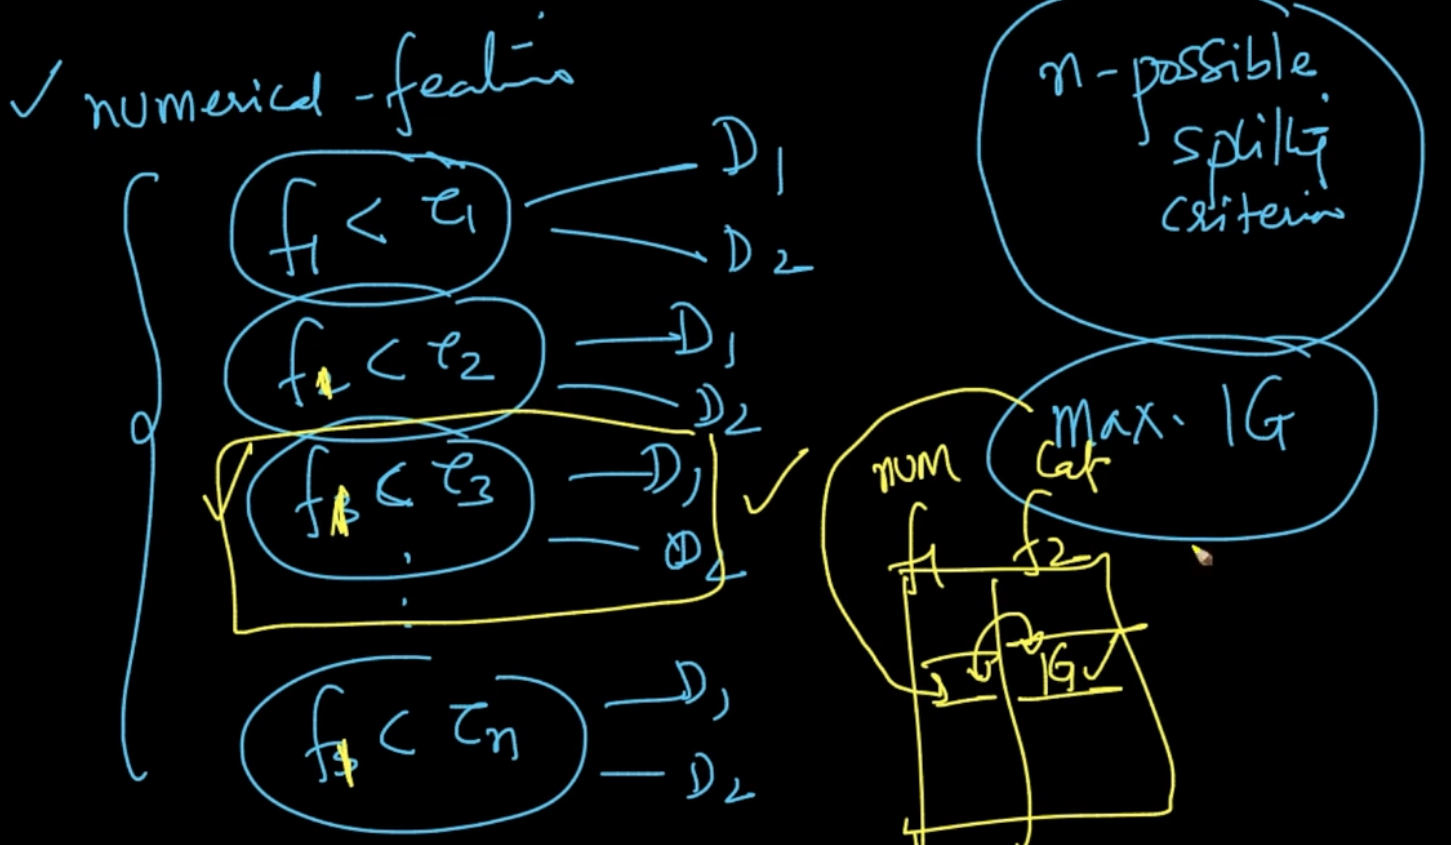 ✓ numerical - features
f1 < τ1
D1
D2
f1 < τ2
D1
D2
f1 < τ3
D1
D2
f1 < τn
D1
D2
n-possible
splitting
criterion
max. IG
num
Cat
f1
f2
IG ✓